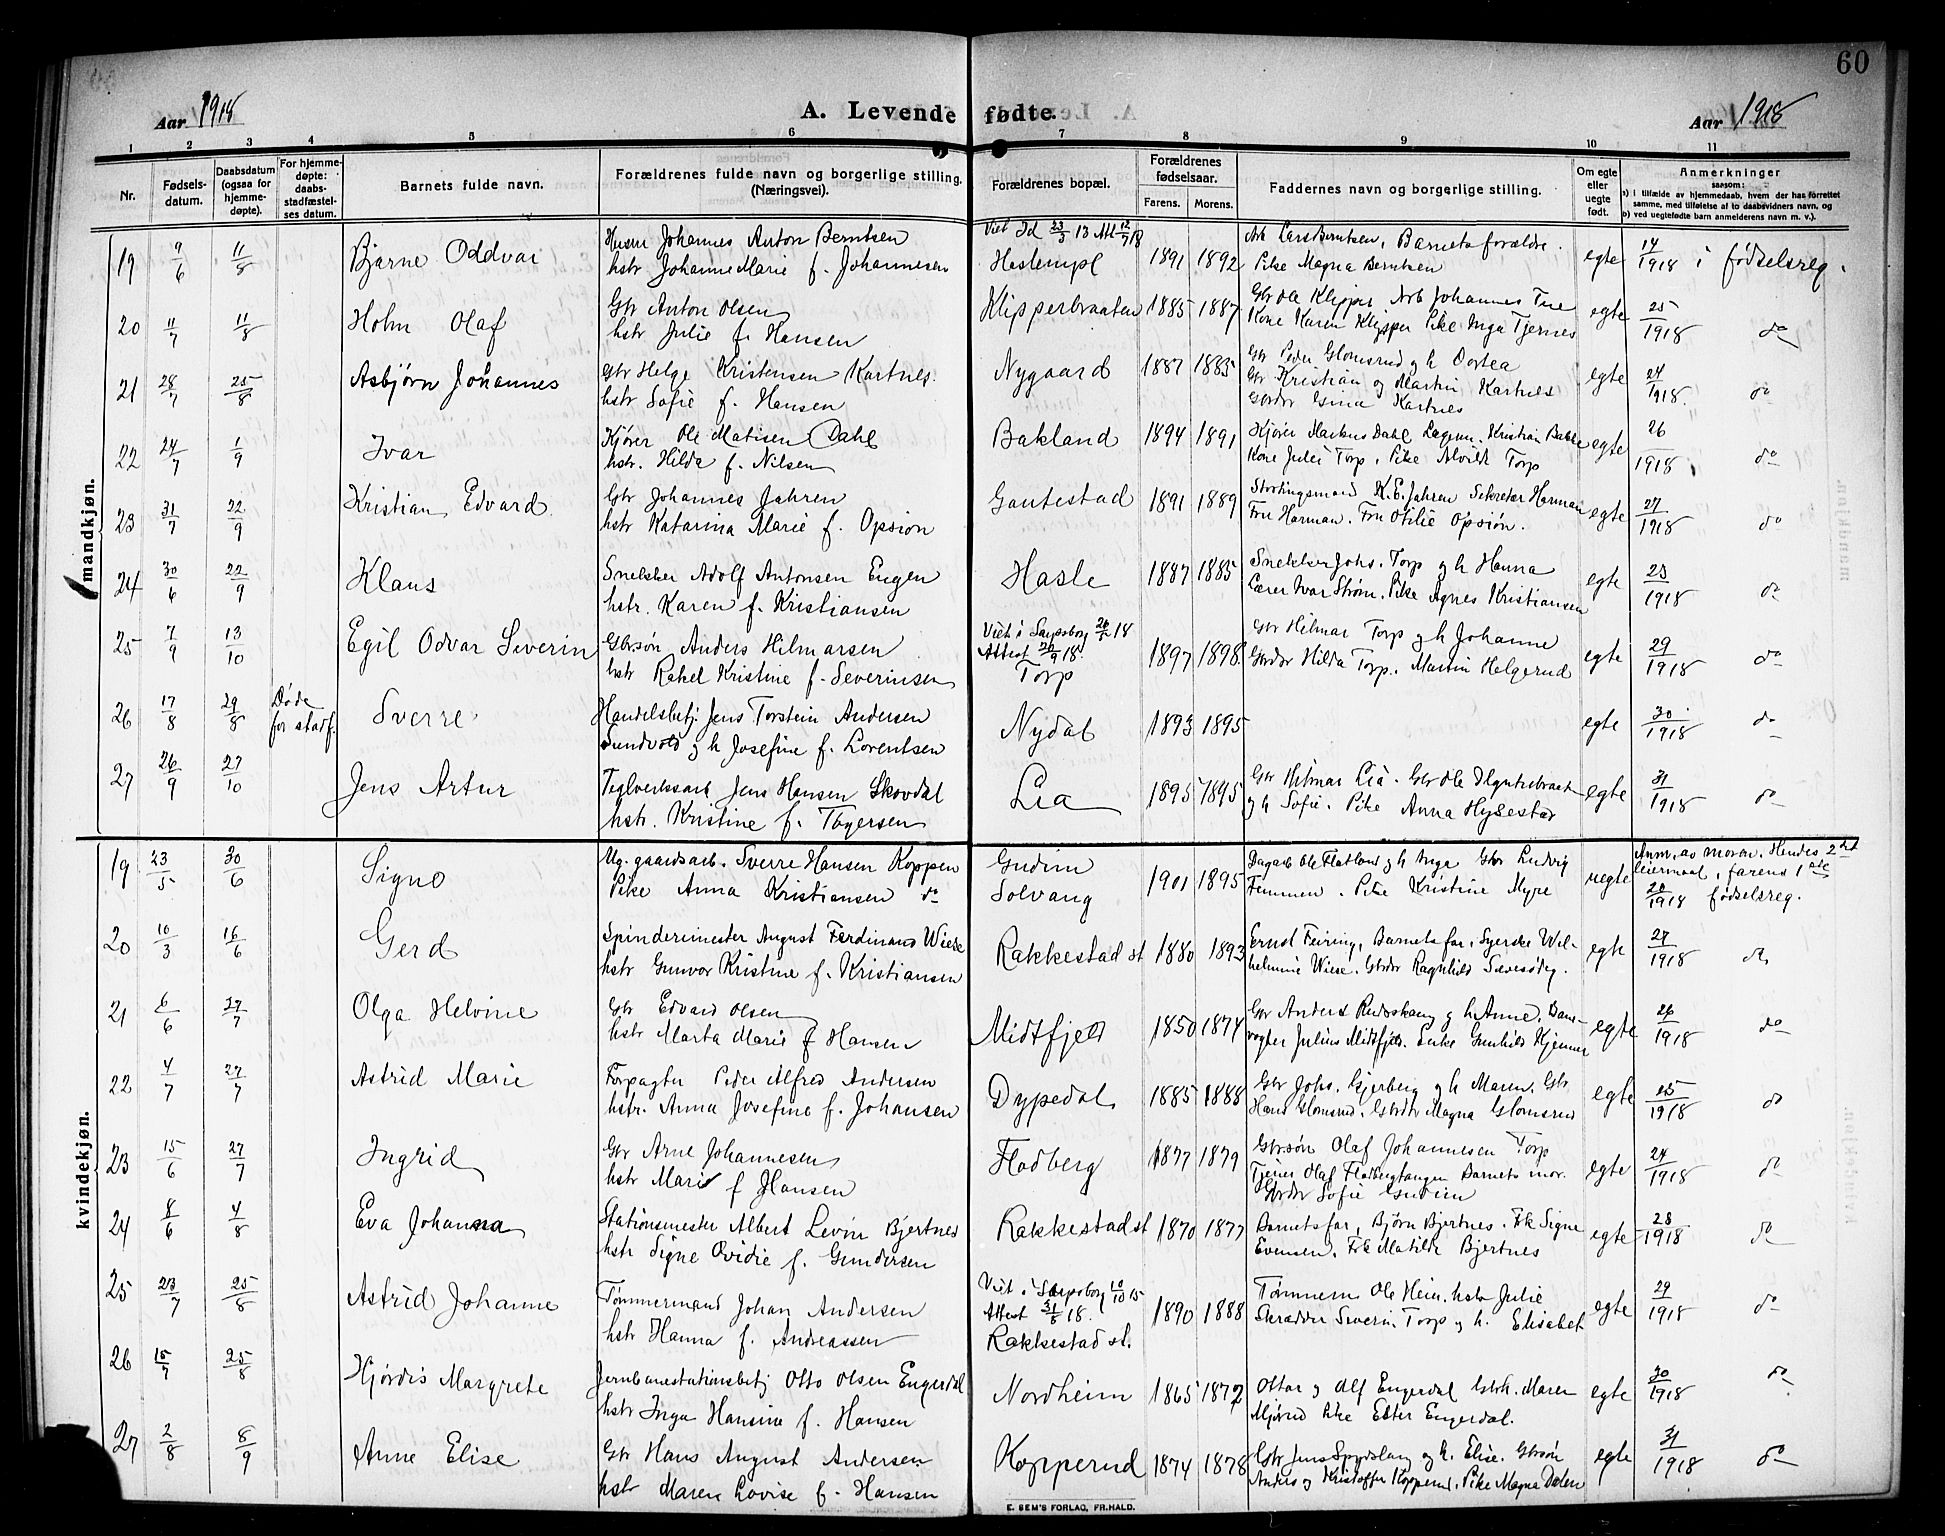 60
Aar 1918 A. Levende fødte. Aar 1918
1 2 3 4 5 6 7 8 9 10 11
Nr.
Fødsels-
datum.
Daabsdatum
(ogsaa for
hjemme-
døpte).
For hjemme-
døpte:
daabs-
stadfæstel-
ses datum.
Barnets fulde navn.
Forældrenes fulde navn og borgerlige stilling.
(Næringsvei).
Forældrenes bopæl.
Forældrenes
fødselsaar.
Farens. Morens.
Faddernes navn og borgerlige stilling.
Om egte
eller
uegte
født.
Anmerkninger
saasom:
a) i tilfælde av hjemmedaab, hvem der har forrettet
samme, med tilføielse af to daabsvidners navn, og
b) ved uegtefødte barn anmelderens navn m. v.).
mandkjøn.
19 9/6 11/8 Bjarne Oddvar
Husm Johannes Anton Berntsen
hstr Johanne Marie f. Johannesen
Viet Id 23/3 13 Att 12/7 18
Haslempl 1891 1892
Arb Lars Berntsen, Barnets forældre.
Pike Magna Berntsen
egte 14/1918 i fødselsreg.
20 11/7 11/8 Holm Olaf
Gbr Anton Olsen
hstr Julie f. Hansen
Klipperbraaten 1885 1887
Gbr Ole Klipper Arb Johannes Tue
Kone Karen Klipper Pike Inga Tjernes
egte 25/1918 do
21 28/7 25/8 Asbjørn Johannes
Gbr Helge Kristensen Kartnes.
hstr Sofie f. Hansen
Nygaard 1887 1883
Gbr Peder Glomsrud og h Dortea
Gbr Kristian og Martin Kartnes
Gbrdr Gina Kartnes
egte 24/1918. do
22 24/7 1/9 Ivar
Kjører Ole Matisen Dahl
hstr. Hilda f. Nilsen
Bakland 1894 1891
Kjører Markus Dahl Lagerm. Kristian Bakke
Kone Julie Torp. Pike Alvilde Torp
egte 26/1918 do
23 31/7 22/9 Kristian Edvard
Gbr Johannes Jahren
hstr Katarina Marie f. Opsion
Gautestad 1891 1889
Stortingsmand K.E. Jahren Sekretær Harman
Fru Harman. Fru Otilie Opsiøn.
egte 27/1918 do
24 30/6 22/9 Klaus
Snekker Adolf Antonsen Engen
hstr. Karen f. Kristiansen
Hasle 1887 1885
Snekker Johs. Torp og h Hanna
Lærer Ivar Strøm. Pike Agnes Kristiansen
egte 23/1918 do
25 7/9 13/10 Egil Odvar Severin
Gbrsøn Anders Hilmarsen
hstr Rakel Kristine f. Severinsen
Viet i Sarpsborg 18
Attest 18.
Torp 1897 1898
Gbr Hilmar Torp og h Johanne
Gbrdr Hilda Torp. Martin Helgerud
egte 29/1918 do
26 17/8 29/8 Døde
før stadf.
Sverre
Handelsbetj. Jens Torstein Andersen
Sundvold og h Josefine f. Lorentsen
Nydal 1893 1895
egte 30/1918 do
27 26/9 27/10 Jens Artur
Teglverksarb Jens Hansen Skovdal
hstr. Kristine f. Tagersen
Lia 1895 1895
Gbr Hilmar Lia. Gbr Ole
og h Sofie. Pike Anna Hysestad
egte 31/1918 do
kvindekjøn.
19 23/5 30/6 Signe
Ug. gaardsarb. Sverre Hansen Koppen
Pike Anna Kristiansen do
Gudim
Solvang 1901 1895
Dagarb Ole Flatland og h Inga Gbr Ludvig
Femmen. Pike Kristine Myre
uegte
Anm. av moren. Hendes 2det
leiermaal, farens 1ste
20/1918 fødselsreg.
20 10/3 16/6 Gerd
Spindemester August Ferdinand Wiese
hstr Gunvor Kristine f. Kristiansen
Rakkestad st 1880 1893
Ernst Feiring, Barnets far, Syerske Wil-
helmine Wiese. Gbrdr Ragnhild
egte 27/1918 do
21 6/6 27/7 Olga Helvine
Gbr Edvard Olsen
hstr Marta Marie f Hansen
Midtfjeld 1850 1874
Gbr Anders Rudskaug og h Anne. Ban-
vogter Julius Midtfjeld. Enke Gunhild Kjenner
egte 26/1918 do
22 4/7 27/7 Astrid Marie
Forpagter Peder Alfred Andersen
hstr. Anna Josefine f. Johansen
Dypedal 1885 1888
Gbr Johs. Gjerberg og h Maren. Gbr
Hans Glomsrud. Gbrdtr Magna Glomsrud
egte 25/1918 do
23 15/6 27/7 Ingrid
Gbr Arne Johannesen
hstr Marie f Hansen
Flodberg 1877 1879
Gbrsøn Olaf Johannesen Torp
Tjener Olaf Flodbergtangen Barnets mor.
Gbrdr Sofie Gudim
egte 24/1918 do
24 8/6 4/8 Eva Johanna
Stationsmester Albert Levin Bjertnes
hstr Signe Ovidie f. Gundersen
Rakkestad st 1870 1877
Barnets far, Bjørn Bjertnes. Frk Signe
Evensen. Frk Matilde Bjertnes
egte 28/1918 do
25 23/7 25/8 Astrid Johanne
Tømmermand Johan Andersen
hstr Hanna f. Andreassen
Viet i Sarpsborg 10/10 15
Attest 31/8 18.
Rakkestad st. 1890 1888
Tømmerm Ole Heim. hstr Julie
Skrædder Severin Torp og h. Elisabet
egte 29/1918 do
26 15/7 25/8 Hjørdis Margrete
Jernbanestationsbetj Otto Olsen Engerdal
hstr Inga Hansine f. Hansen
Nordheim 1865 1872
Ottar og Alf Engerdal Gbrk. Maren
Mjørud Pike Ester Engerdal.
egte 30/1918 do
27 2/8 8/9 Anne Elise
Gbr Hans August Andersen
hstr Maren Lovise f. Hansen
Kopperud 1874 1878
Gbr Jens Spydslaug og h. Elise. Gbrsøn
Anders og Kristoffer Kopperud. Pike Magna Dalen
egte 31/1918 do
E. SEM'S FORLAG, FR.HALD.